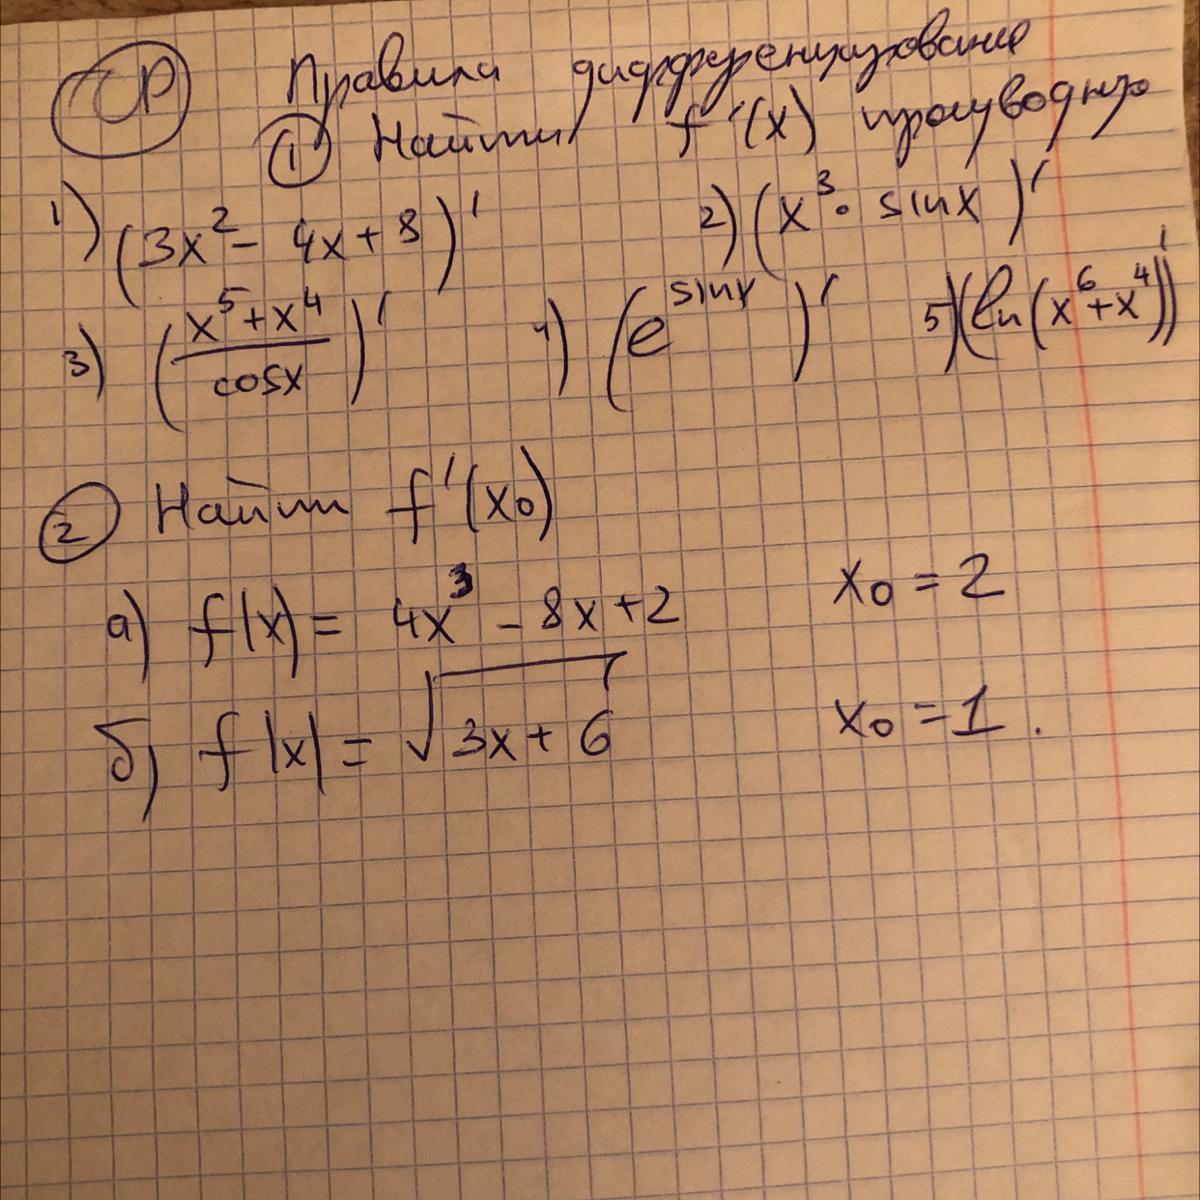 СР Правила дифференцирования
① Найти f'(x) производную
1) (3x² - 4x + 8)' 2) (x³ · sinx)'
3) ((x⁵ + x⁴)/cosx)' 4) (e^sinx)' 5) (ln(x⁶ + x⁴))'
② Найти f'(x₀)
а) f(x) = 4x³ - 8x + 2 x₀ = 2
б) f(x) = √(3x + 6) x₀ = 1.